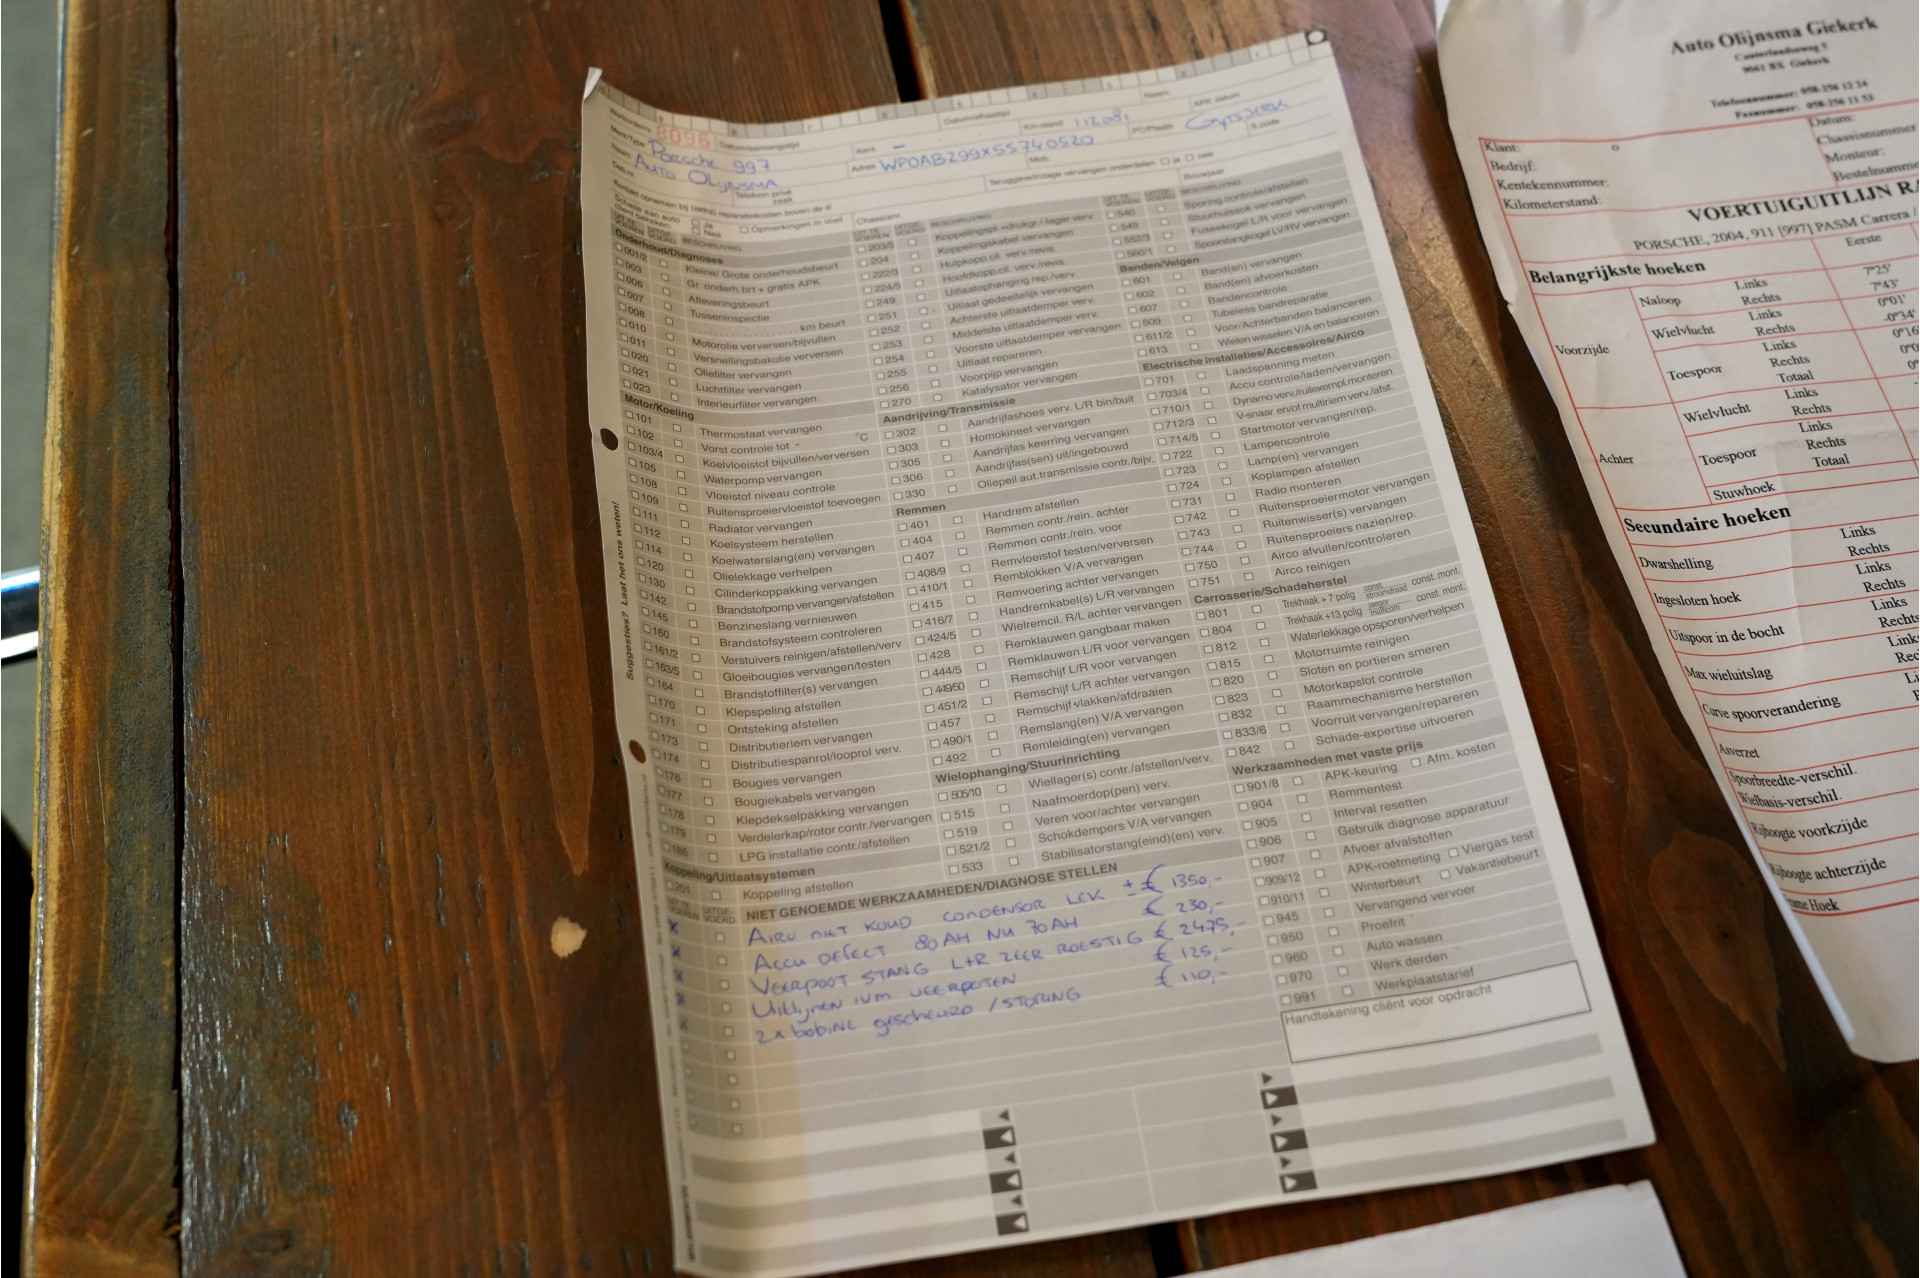 8096
Merk/Type Porsche 997
Km-stand 112081
Naam: Auto Olijnsma
Adres WP0AB299X5S740520
PC/Plaats
APK datum
Telefoon privé
Mob.
Teruggave/inzage vervangen onderdelen ja nee
Schade aan auto
Opmerkingen in voertuig
Onderhoud/Diagnoses
001/2 Kleine/ Grote onderhoudsbeurt
003 Gr. onderh.brt + gratis APK
006 Afleveringsbeurt
007 Tusseninspectie
008 km beurt
010 Motorolie verversen/bijvullen
011 Versnellingsbakolie verversen
020 Oliefilter vervangen
021 Luchtfilter vervangen
023 Interieurfilter vervangen
Motor/Koeling
101 Thermostaat vervangen
102 Vorst controle tot - °C
103/4 Koelvloeistof bijvullen/verversen
105 Waterpomp vervangen
108 Vloeistof niveau controle
109 Ruitensproeiervloeistof toevoegen
111 Radiator vervangen
112 Koelsysteem herstellen
114 Koelwaterslang(en) vervangen
120 Olielekkage verhelpen
130 Cilinderkoppakking vervangen
142 Brandstofpomp vervangen/afstellen
145 Benzineslang vernieuwen
160 Brandstofsysteem controleren
161/2 Verstuivers reinigen/afstellen/verv
163/5 Gloeibougies vervangen/testen
164 Brandstoffilter(s) vervangen
170 Klepspeling afstellen
171 Ontsteking afstellen
173 Distributieriem vervangen
174 Distributiespanrol/looprol verv.
176 Bougies vervangen
177 Bougiekabels vervangen
178 Klepdekselpakking vervangen
179 Verdelerkap/rotor contr./vervangen
186 LPG installatie contr./afstellen
Koppeling/Uitlaatsystemen
201 Koppeling afstellen
203/5 Koppelingspl.+drukgr./lager verv.
204 Koppelingskabel vervangen
222/3 Hulpkopp.cil. verv./revis.
224/5 Hoofdkopp.cil. verv./revis.
249 Uitlaatophanging rep./verv.
251 Uitlaat gedeeltelijk vervangen
252 Achterste uitlaatdemper verv.
253 Middelste uitlaatdemper verv.
254 Voorste uitlaatdemper vervangen
255 Uitlaat repareren
256 Voorpijp vervangen
270 Katalysator vervangen
Aandrijving/Transmissie
302 Aandrijfashoes verv. L/R bin/buit
303 Homokineet vervangen
305 Aandrijfas keerring vervangen
306 Aandrijfas(sen) uit/ingebouwd
330 Oliepeil aut.transmissie contr./bijv.
Remmen
401 Handrem afstellen
404 Remmen contr./rein. achter
407 Remmen contr./rein. voor
408/9 Remvloeistof testen/verversen
410/1 Remblokken V/A vervangen
415 Remvoering achter vervangen
416/7 Handremkabel(s) L/R vervangen
424/5 Wielremcil. R/L achter vervangen
428 Remklauwen gangbaar maken
444/5 Remklauwen L/R voor vervangen
449/50 Remschijf L/R voor vervangen
451/2 Remschijf L/R achter vervangen
457 Remschijf vlakken/afdraaien
490/1 Remslang(en) V/A vervangen
492 Remleiding(en) vervangen
Wielophanging/Stuurinrichting
505/10 Wiellager(s) contr./afstellen/verv.
515 Naafmoerdop(pen) verv.
519 Veren voor/achter vervangen
521/2 Schokdempers V/A vervangen
533 Stabilisatorstang(eind)(en) verv.
540 Sporing controle/afstellen
549 Stuurhuissok vervangen
552/3 Fuseekogel L/R voor vervangen
560/1 Spoorstangkogel LV/RV vervangen
Banden/Velgen
601 Band(en) vervangen
602 Band(en) afvoerkosten
607 Bandencontrole
609 Tubeless bandreparatie
611/2 Voor/Achterbanden balanceren
613 Wielen wisselen V/A en balanceren
Electrische Installaties/Accessoires/Airco
701 Laadspanning meten
703/4 Accu controle/laden/vervangen
710/1 Dynamo verv./ruilexempl.monteren
712/3 V-snaar en/of multiriem verv./afst.
714/5 Startmotor vervangen/rep.
722 Lampencontrole
723 Lamp(en) vervangen
724 Koplampen afstellen
731 Radio monteren
742 Ruitensproeiermotor vervangen
743 Ruitenwisser(s) vervangen
744 Ruitensproeiers nazien/rep.
750 Airco afvullen/controleren
751 Airco reinigen
Carrosserie/Schadeherstel
801 Trekhaak + 7 polig const. mont.
Trekhaak +13 polig const. mont.
804 Waterlekkage opsporen/verhelpen
812 Motorruimte reinigen
815 Sloten en portieren smeren
820 Motorkapslot controle
823 Raammechanisme herstellen
832 Voorruit vervangen/repareren
833/6 Schade-expertise uitvoeren
842
Werkzaamheden met vaste prijs
901/8 APK-keuring Afm. kosten
904 Remmentest
905 Interval resetten
906 Gebruik diagnose apparatuur
907 Afvoer afvalstoffen
909/12 APK-roetmeting Viergas test
910/11 Winterbeurt Vakantiebeurt
945 Vervangend vervoer
950 Proefrit
960 Auto wassen
970 Werk derden
991 Werkplaatstarief
Handtekening cliënt voor opdracht
NIET GENOEMDE WERKZAAMHEDEN/DIAGNOSE STELLEN
x Airco niet koud condensor lek ± € 1350,-
x Accu defect 80 AH nu 70 AH € 230,-
x Veerpoot stang L+R zeer roestig € 2475,-
x Uitlijnen ivm veerpoten € 125,-
x 2x bobine gescheurd / storing € 110,-
Suggesties? Laat het ons weten!
Auto Olijnsma Giekerk
Canterlandseweg 7
9061 BX Giekerk
Telefoonnummer: 058-256 12 24
Faxnummer: 058-256 11 53
Klant:
Bedrijf:
Kentekennummer:
Kilometerstand:
Datum:
Chassisnummer
Monteur:
Bestelnumme
VOERTUIGUITLIJN RA
PORSCHE, 2004, 911 [997] PASM Carrera /
Belangrijkste hoeken Eerste
Voorzijde Naloop Links 7°25'
Rechts 7°43'
Wielvlucht Links 0°01'
Rechts -0°34'
Toespoor Links 0°16
Rechts
Totaal
Achter Wielvlucht Links
Rechts
Toespoor Links
Rechts
Totaal
Stuwhoek
Secundaire hoeken
Dwarshelling Links
Rechts
Ingesloten hoek Links
Rechts
Uitspoor in de bocht Links
Rechts
Max wieluitslag
Curve spoorverandering
Asverzet
Spoorbreedte-verschil.
Wielbasis-verschil.
Rijhoogte voorkzijde
Rijhoogte achterzijde
Frame Hoek